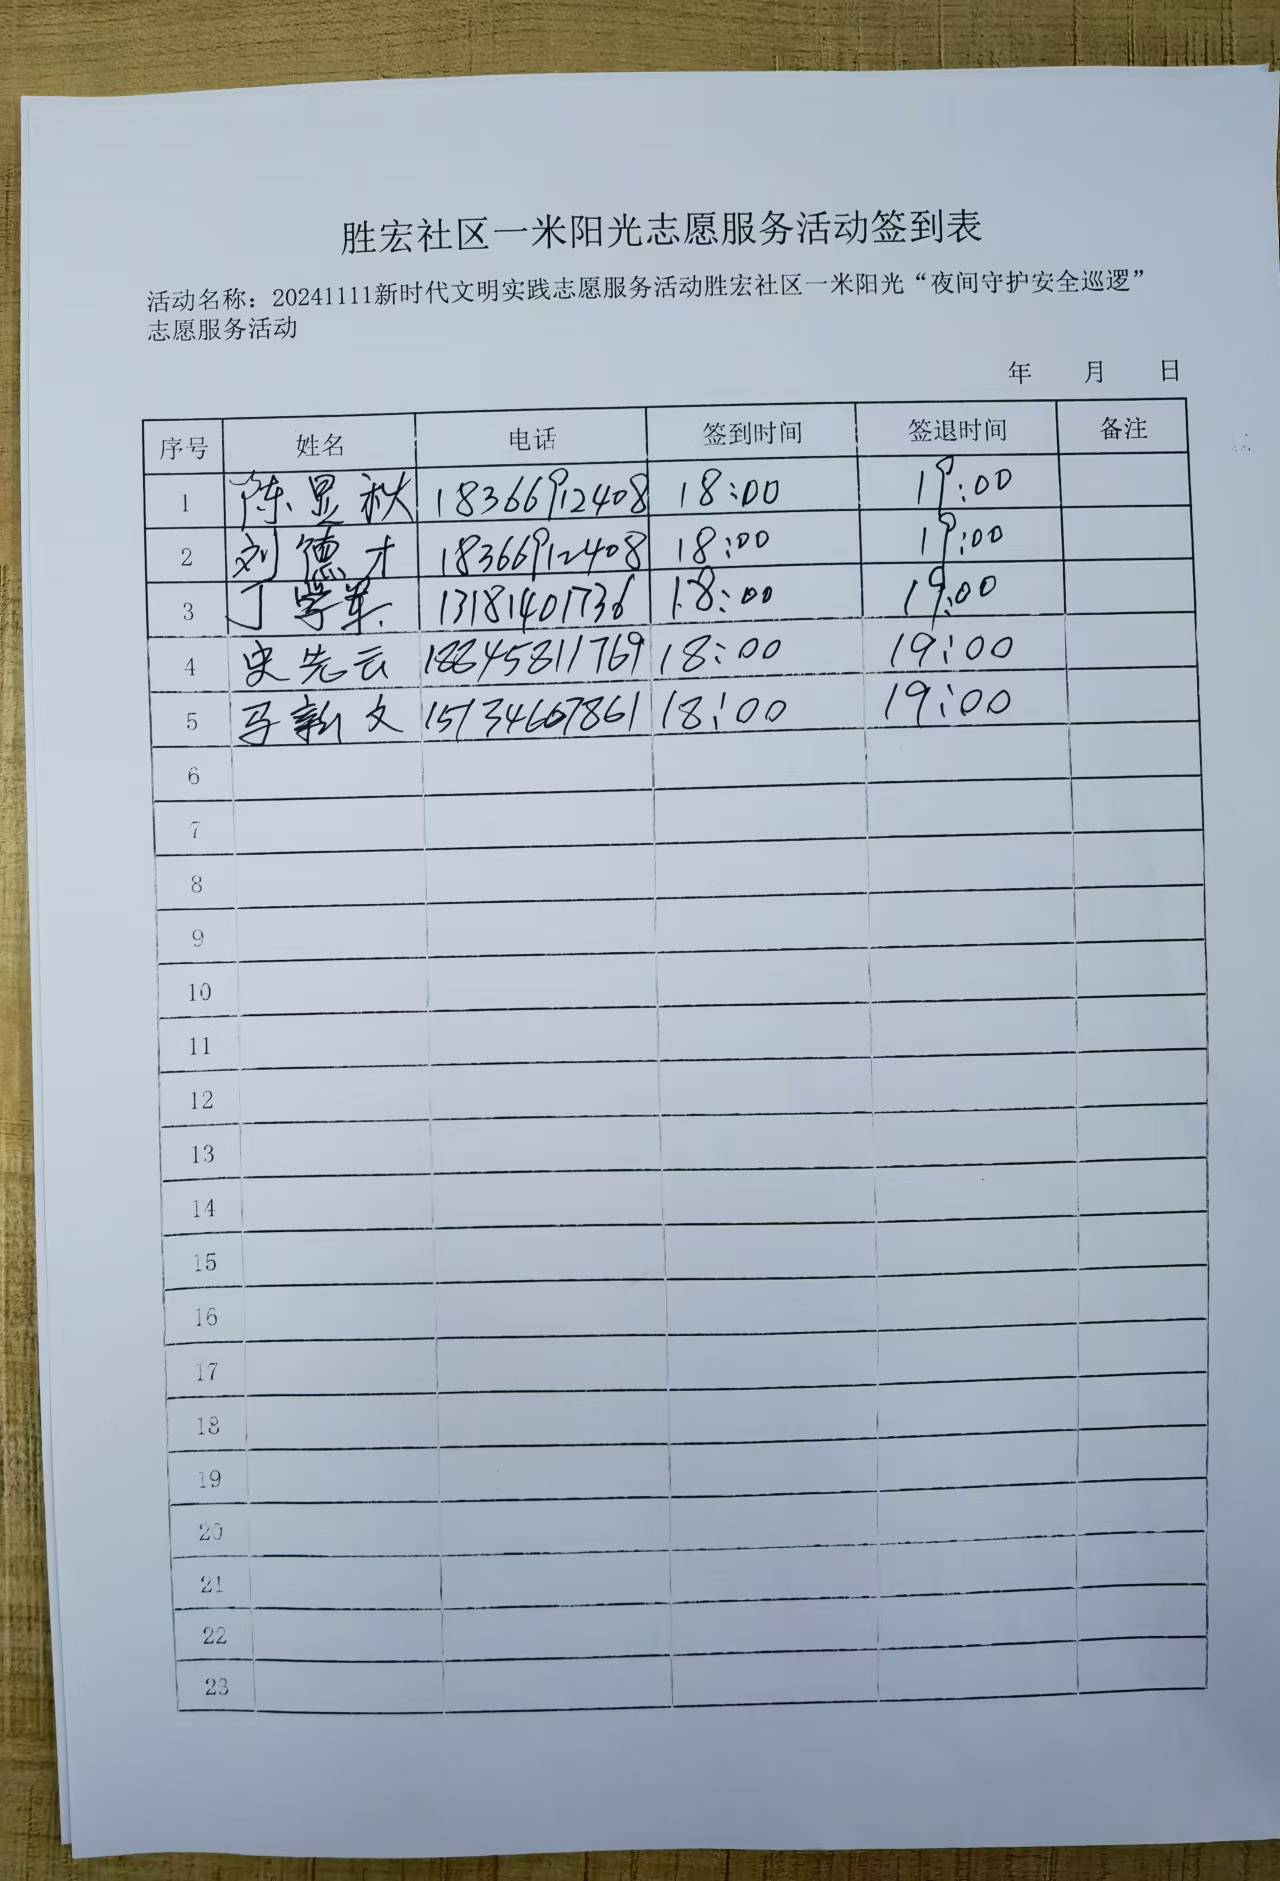 胜宏社区一米阳光志愿服务活动签到表
活动名称：20241111新时代文明实践志愿服务活动胜宏社区一米阳光“夜间守护安全巡逻”
志愿服务活动
年 月 日
序号 姓名 电话 签到时间 签退时间 备注
1 陈显秋 18366912408 18:00 19:00
2 刘德才 18366912408 18:00 19:00
3 丁学 13181401736 18:00 19:00
4 史先云 18845811769 18:00 19:00
5 马新文 15134667861 18:00 19:00
6
7
8
9
10
11
12
13
14
15
16
17
18
19
20
21
22
23